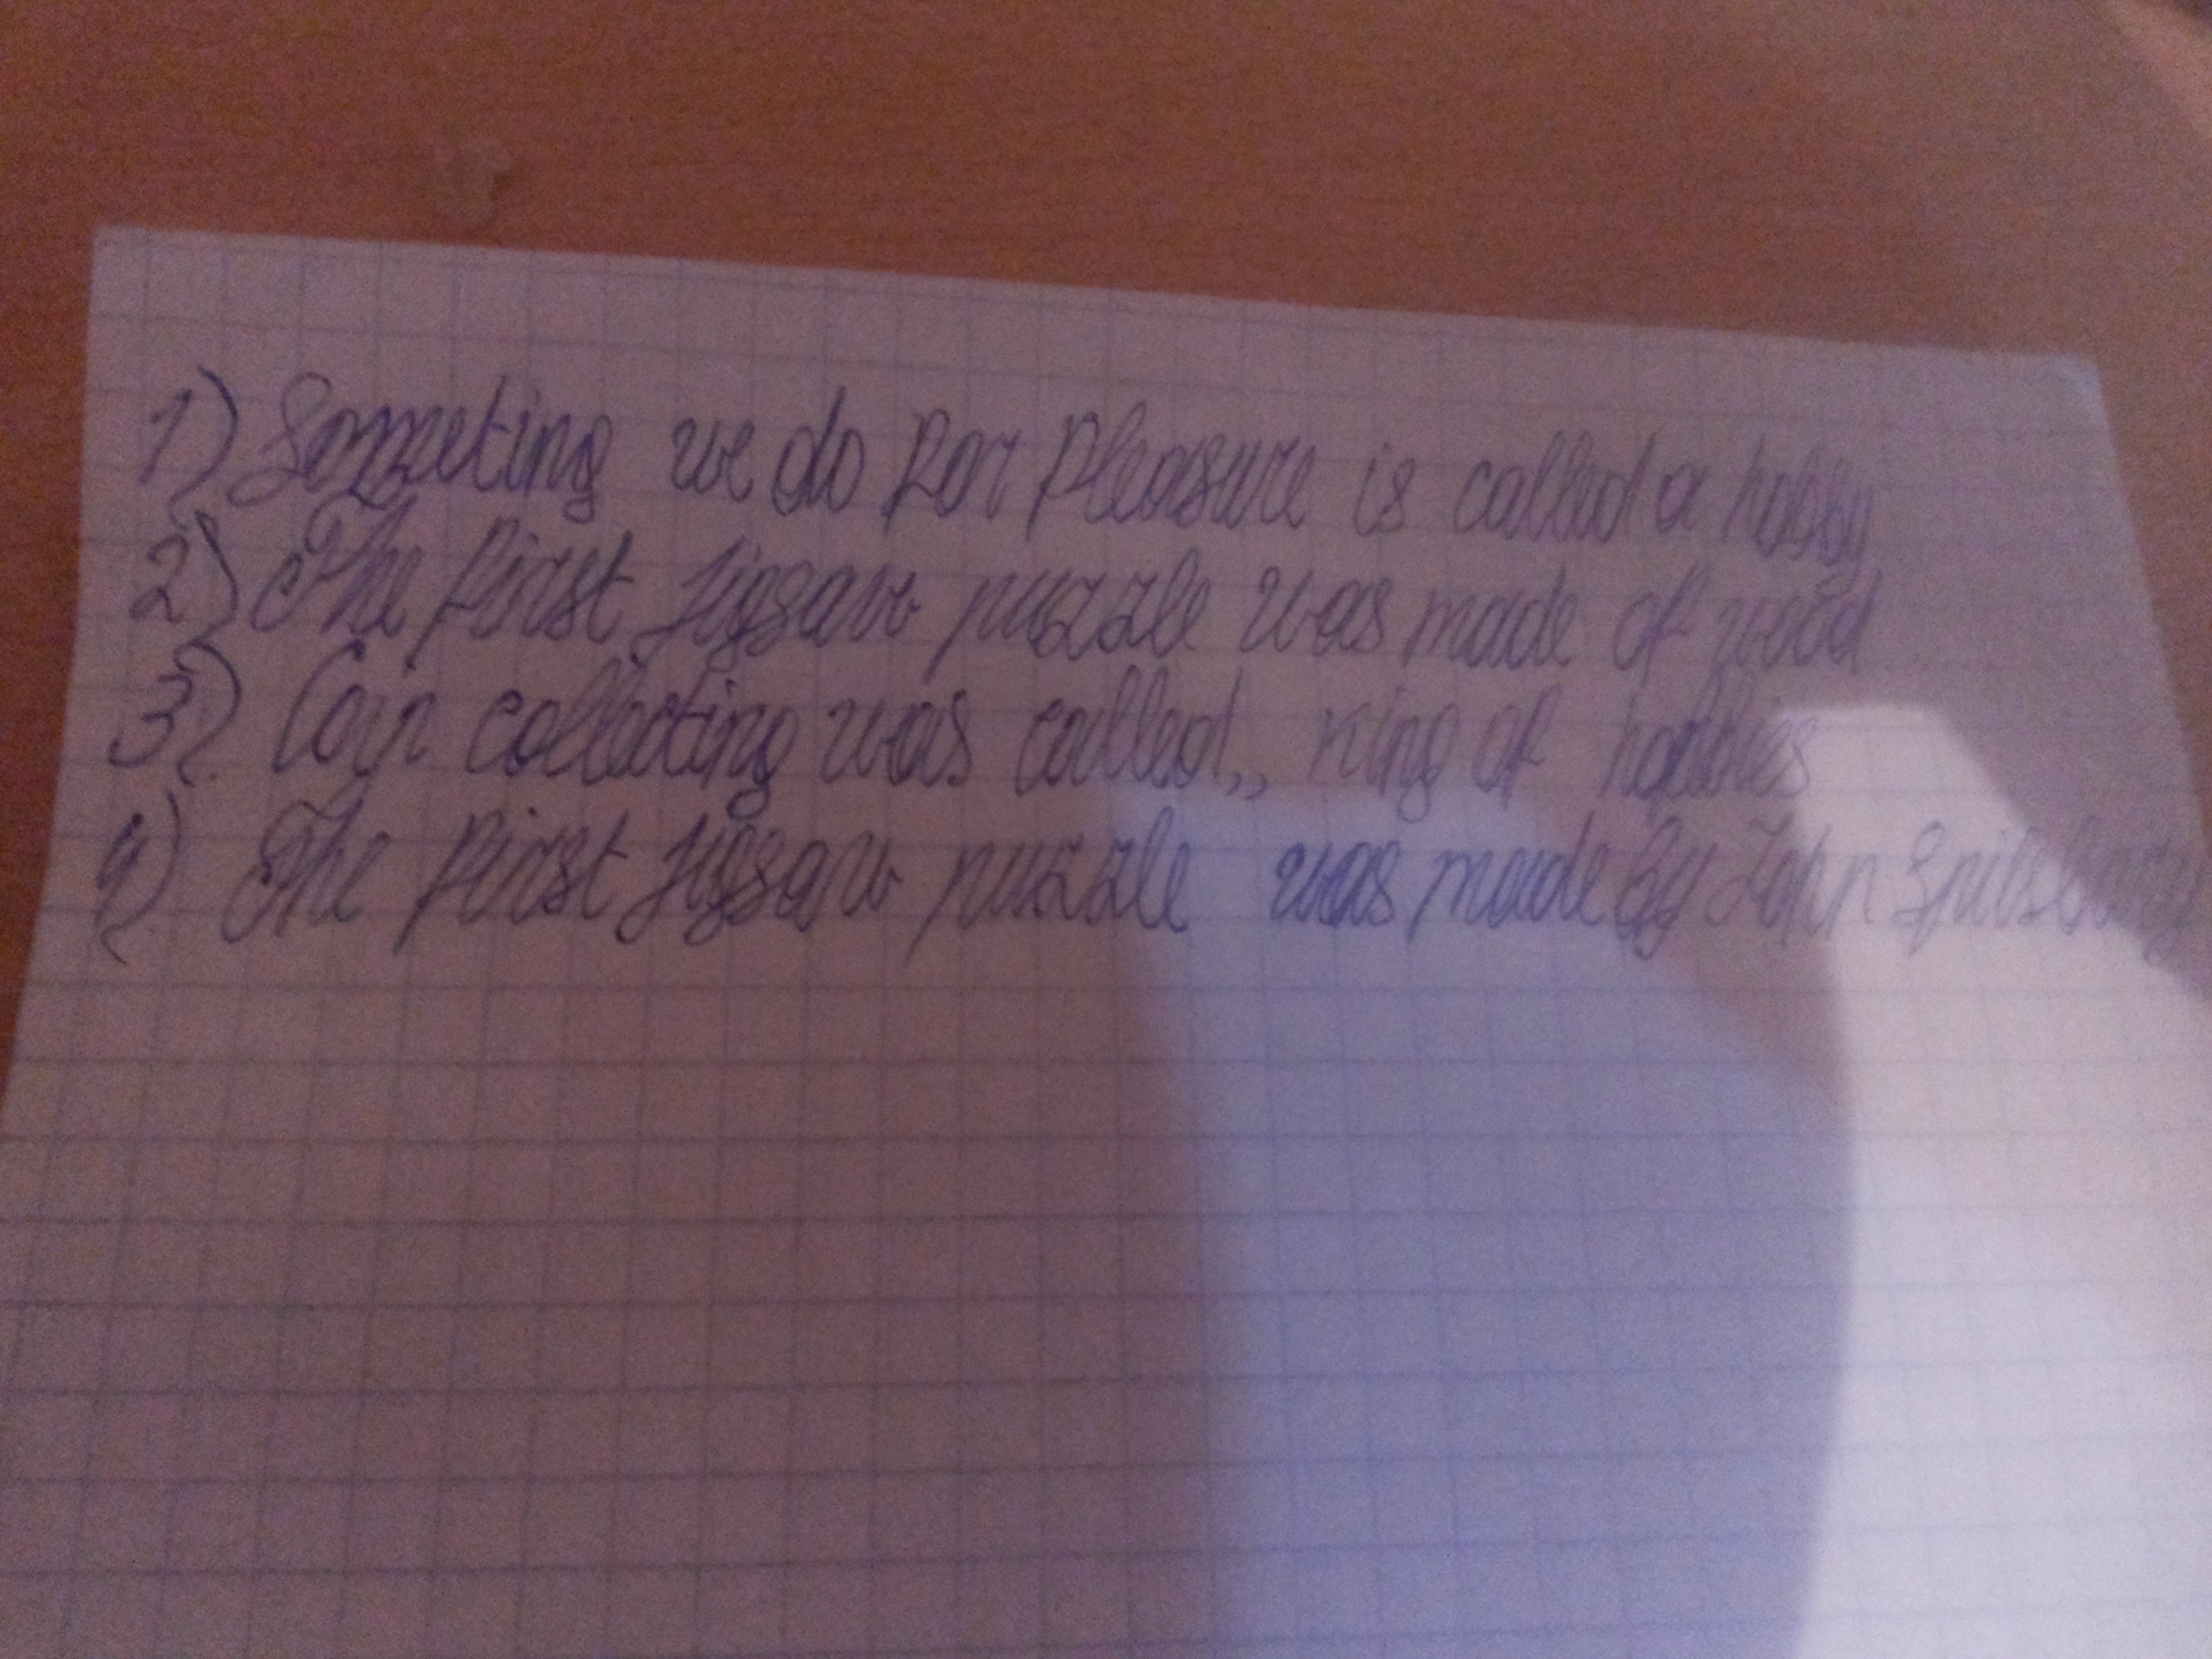 1) Someting we do for pleasure is called a hobby
2) The first jigsaw puzzle was made of wood
3) Coin collecting was called „ King of hobbies
4) The first jigsaw puzzle was made by John Spilsbury